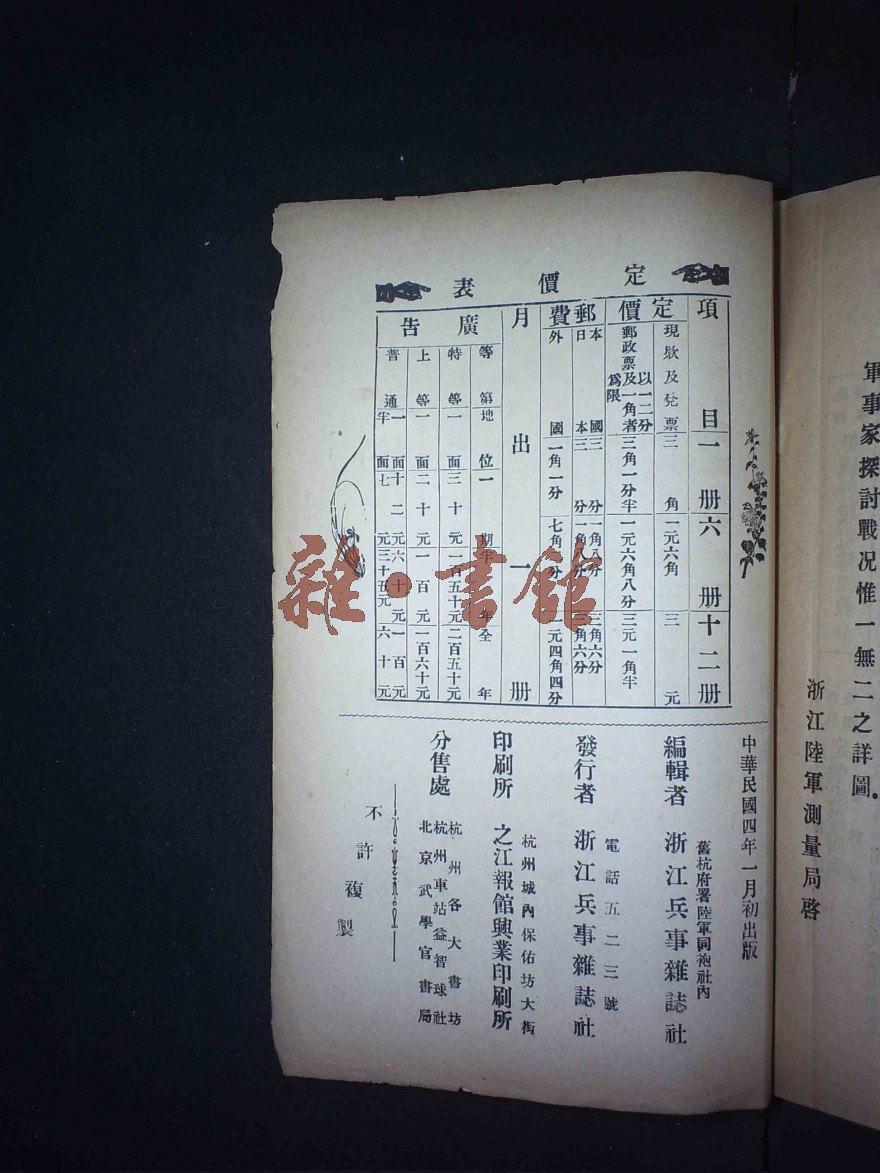 軍事家探討戰况惟一無二之詳圖.
浙江陸軍測量局啓
定價表
項目 一册 六册 十二册
定價
現欵及兌票 三角 一元六角 三元
郵政票以一二分及一角者為限 三角一分半 一元六角八分 三元一角半
郵費
本國 三分 一角八分 三角六分
日本 三分 一角八分 三角六分
外國 一角一分 七角 一元四角四分
月出一册
廣告
等第 地位 一期 半年 全年
特等 一面 三十元 一百五十元 二百五十元
上等 一面 二十元 一百元 一百六十元
普通 一面 十二元 六十元 一百元
半面 七元 三十五元 六十元
中華民國四年一月初出版
舊杭府署陸軍同袍社內
編輯者 浙江兵事雜誌社
電話五二三號
發行者 浙江兵事雜誌社
杭州城內保佑坊大街
印刷所 之江報館興業印刷所
分售處
杭州各大書坊
杭州車站益智球社
北京武學官書局
不許複製
雜·書館